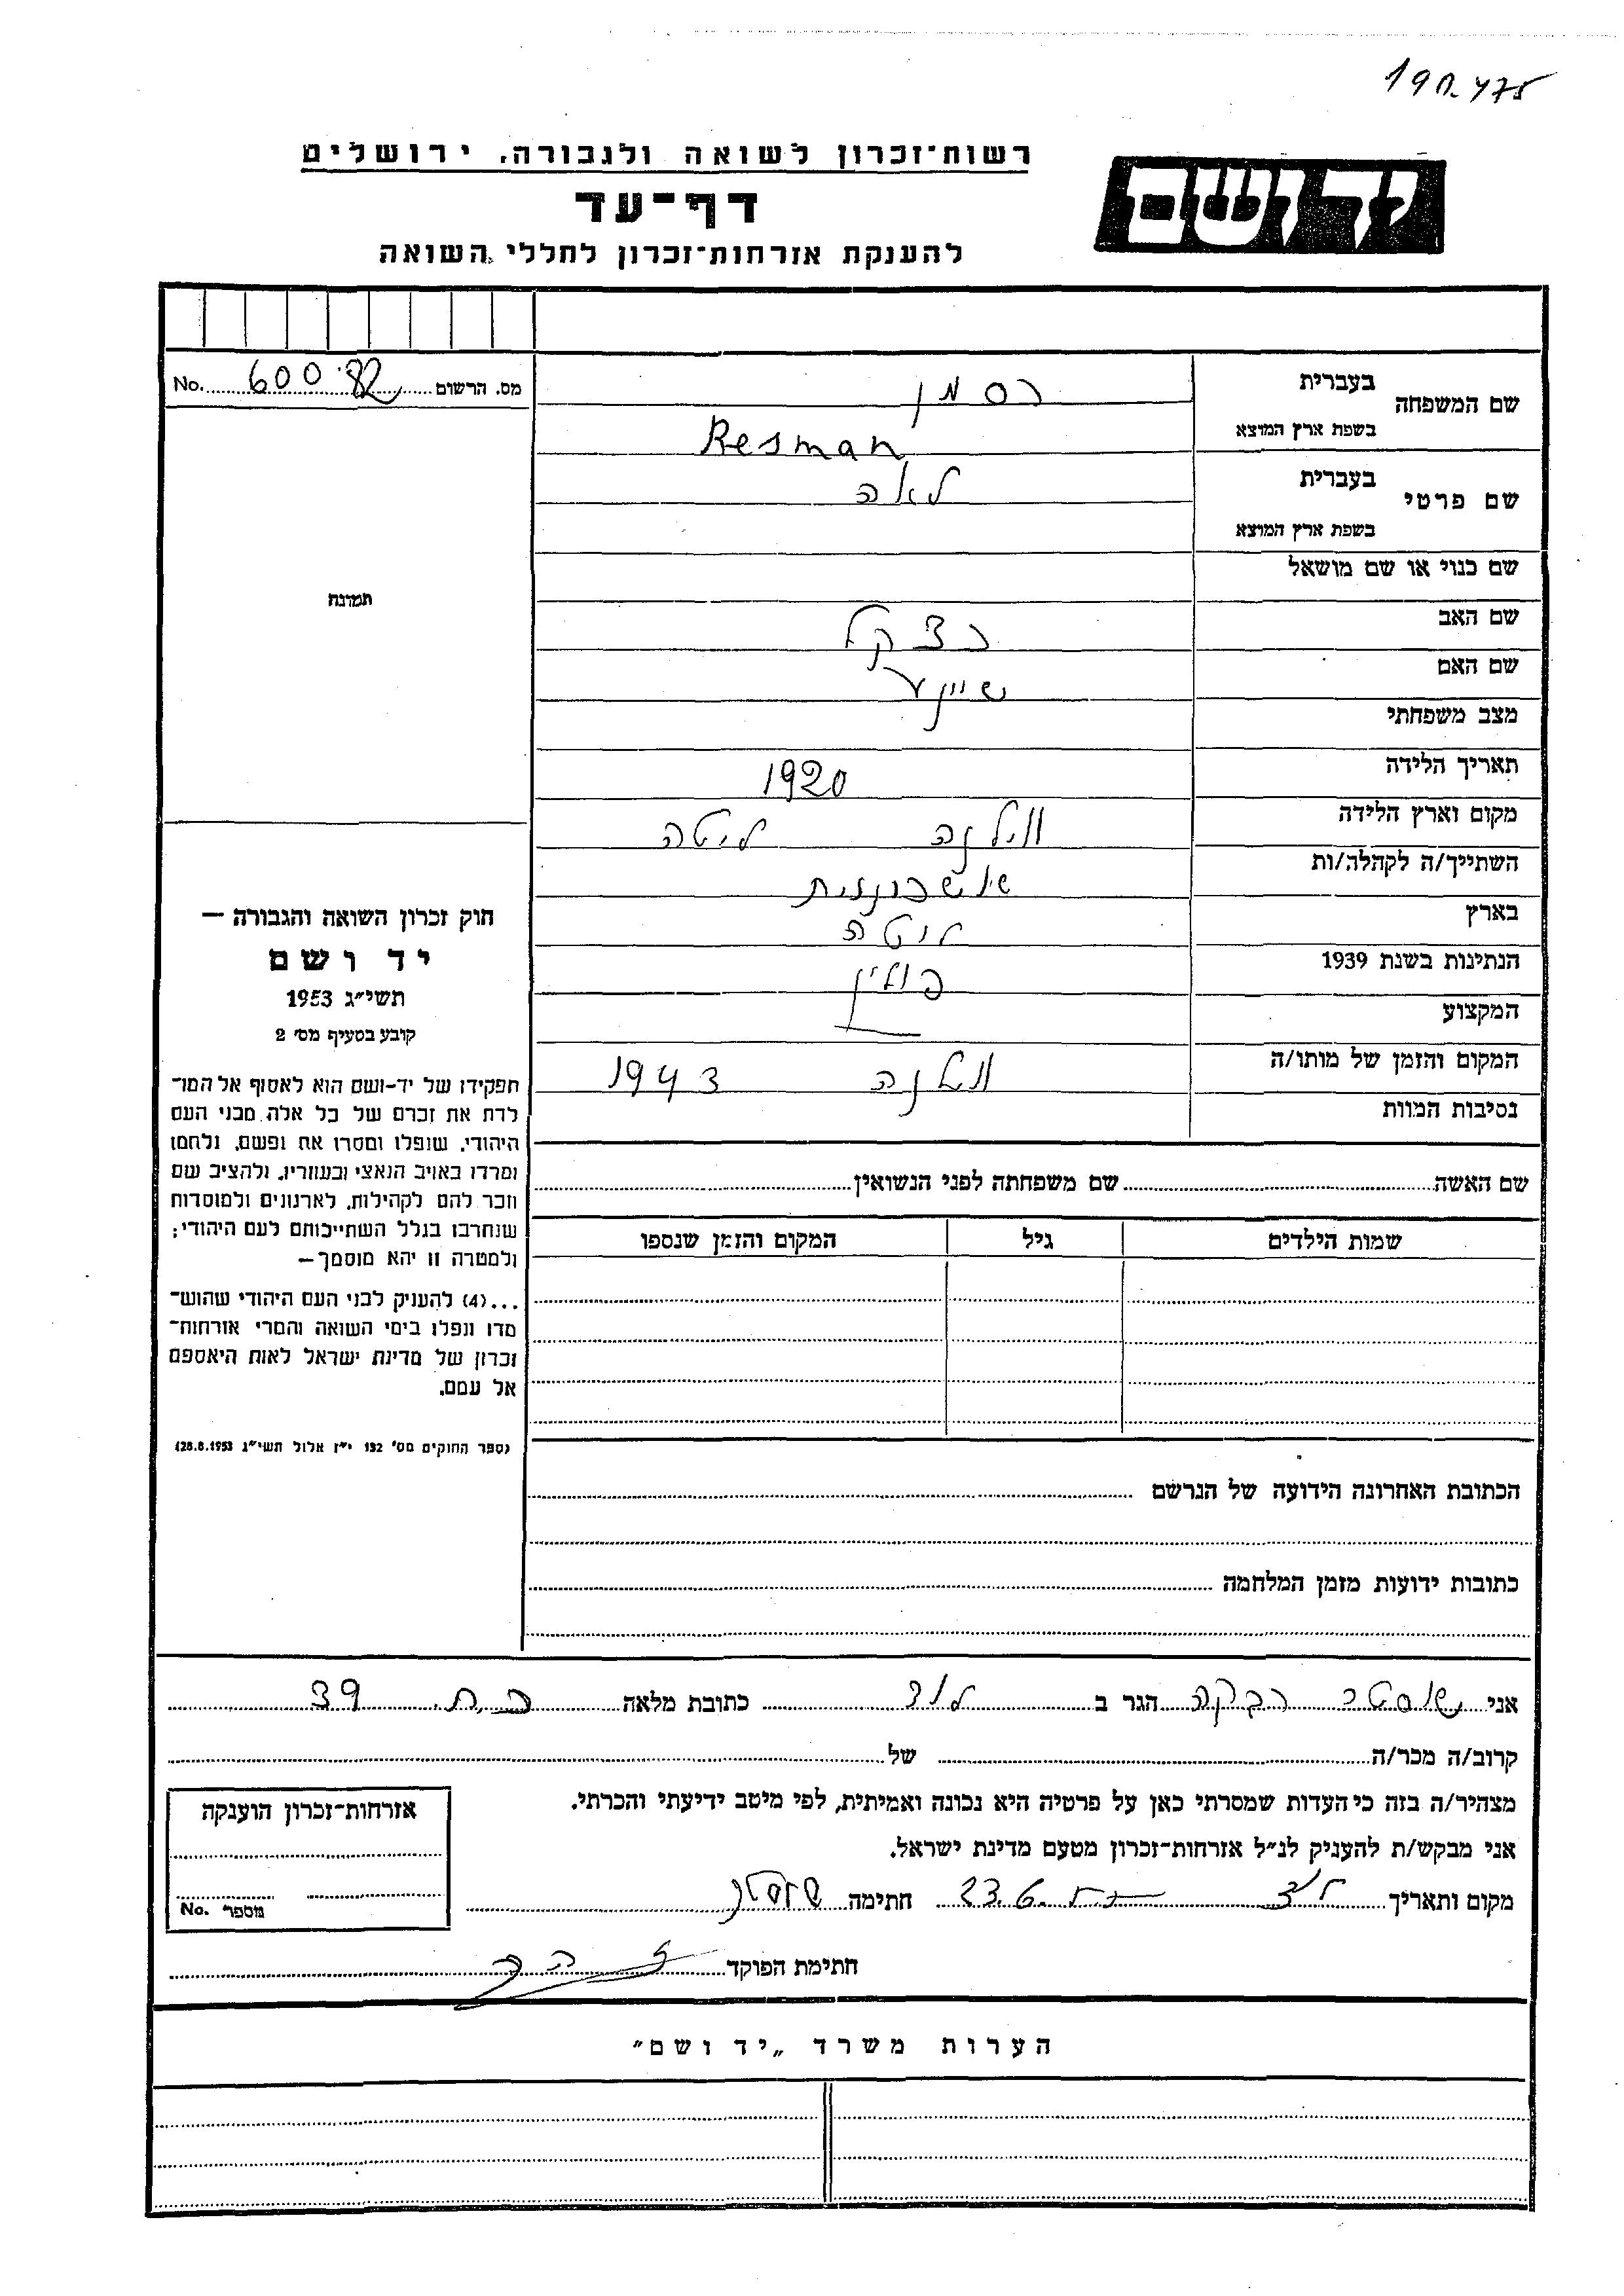 190.475
רשות־זכרון לשואה ולגבורה, ירושלים
יד ושם
דף־עד
להענקת אזרחות־זכרון לחללי השואה
מס. הרשום 600 82 No.
שם המשפחה
בעברית רסמן
בשפת ארץ המוצא Resman
שם פרטי
בעברית לאה
בשפת ארץ המוצא
שם כנוי או שם מושאל
שם האב
שם האם שיינע
מצב משפחתי
תאריך הלידה 1920
מקום וארץ הלידה ווילנה ליטה
השתייך/ה לקהלה/ות
בארץ ליטה
הנתינות בשנת 1939 פולין
המקצוע
המקום והזמן של מותו/ה ווילנה 1943
נסיבות המוות
תמונה
חוק זכרון השואה והגבורה —
יד ושם
תשי״ג 1953
קובע בסעיף מס׳ 2
תפקידו של יד-ושם הוא לאסוף אל המו־
לדת את זכרם של כל אלה מבני העם
היהודי, שנפלו ומסרו את נפשם, נלחמו
ומרדו באויב הנאצי ובעוזריו, ולהציב שם
וזכר להם לקהילות, לארגונים ולמוסדות
שנחרבו בגלל השתייכותם לעם היהודי;
ולמטרה זו יהא מוסמך —
...(4) להעניק לבני העם היהודי שהוש־
מדו ונפלו בימי השואה והמרי אזרחות־
זכרון של מדינת ישראל לאות היאספם
אל עמם.
(ספר החוקים מס׳ 132 י״ז אלול תשי״ג 28.8.1953)
שם האשה שם משפחתה לפני הנשואין
שמות הילדים גיל המקום והזמן שנספו
הכתובת האחרונה הידועה של הנרשם
כתובות ידועות מזמן המלחמה
אני שוסטר רבקה הגר ב לוד כתובת מלאה 39
קרוב/ה מכר/ה של
מצהיר/ה בזה כי העדות שמסרתי כאן על פרטיה היא נכונה ואמיתית, לפי מיטב ידיעתי והכרתי.
אני מבקש/ת להעניק לנ״ל אזרחות־זכרון מטעם מדינת ישראל.
מקום ותאריך 23.6 חתימה
חתימת הפוקד
אזרחות־זכרון הוענקה
מספר No.
הערות משרד „יד ושם״